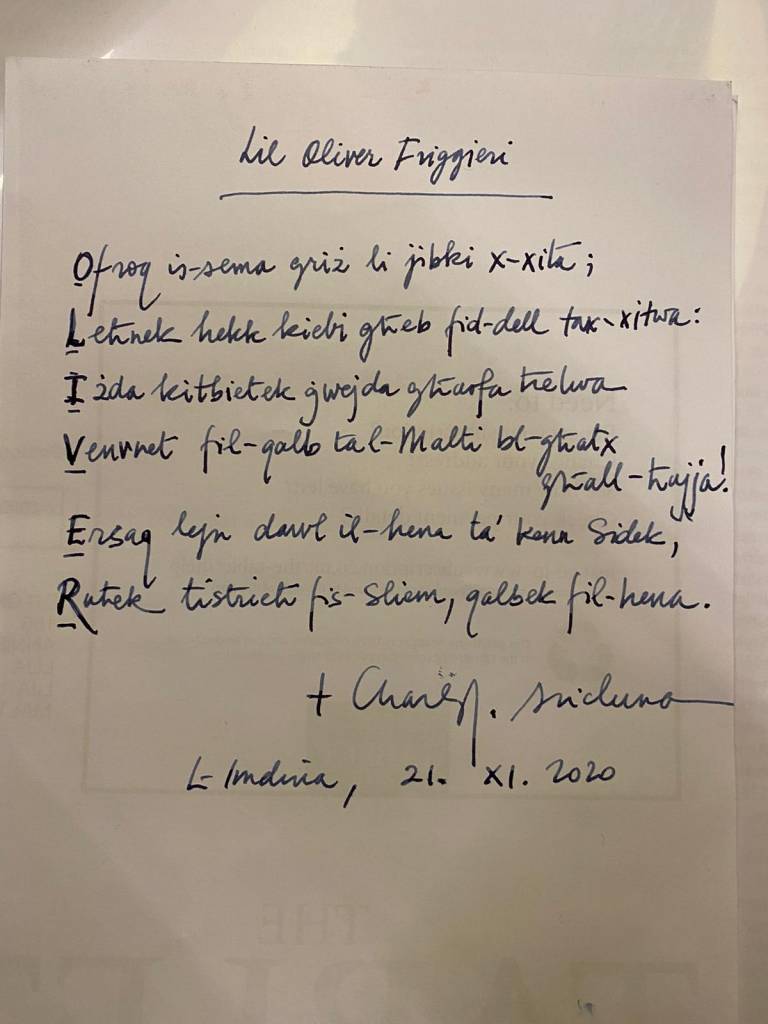 Lil Oliver Friggieri
Ofroq is-sema griż li jibki x-xita;
Leħnek hekk kiebi għeb fid-dell tax-xitwa:
Iżda kitbietek ġwejda għarfa ħelwa
Venvnet fil-qalb tal-Malti bl-għatx
għall-ħajja!
Ersaq lejn dawl il-hena ta' kenn Sidek,
Ruħek tistrieħ fis-Sliem, qalbek fil-hena.
+ Charles J. Scicluna
L-Imdina, 21. XI. 2020
THE